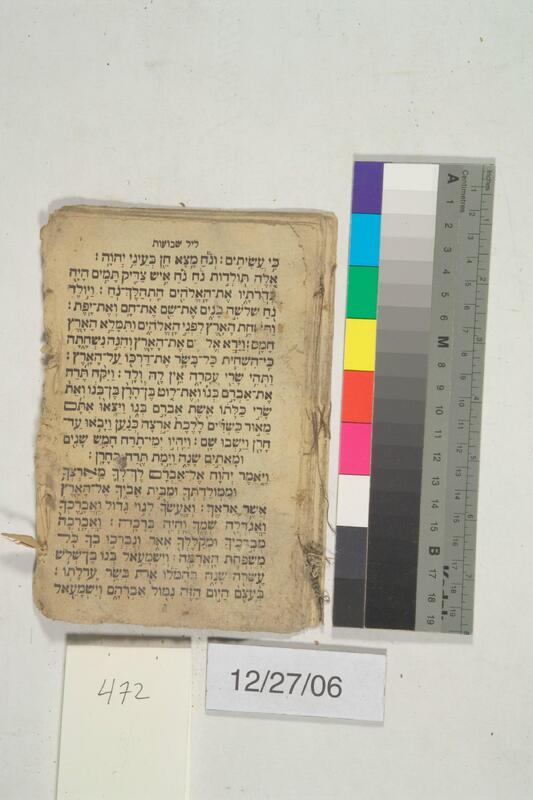 ליל שבועות
כִּי עֲשִׂיתִים : וְנֹחַ מָצָא חֵן בְּעֵינֵי יְהוָה :
אֵלֶּה תּוֹלְדוֹת נֹחַ נֹחַ אִישׁ צַדִּיק תָּמִים הָיָה
בְּדֹרֹתָיו אֶת־הָאֱלֹהִים הִתְהַלֶּךְ־נֹחַ : וַיּוֹלֶד
נֹחַ שְׁלֹשָׁה בָנִים אֶת־שֵׁם אֶת־חָם וְאֶת־יָפֶת :
וַתִּשָּׁחֵת הָאָרֶץ לִפְנֵי הָאֱלֹהִים וַתִּמָּלֵא הָאָרֶץ
חָמָס : וַיַּרְא אֶת־הָאָרֶץ וְהִנֵּה נִשְׁחָתָה
כִּי־הִשְׁחִית כָּל־בָּשָׂר אֶת־דַּרְכּוֹ עַל־הָאָרֶץ :
וַתְּהִי שָׂרַי עֲקָרָה אֵין לָהּ וָלָד : וַיִּקַּח תֶּרַח
אֶת־אַבְרָם בְּנוֹ וְאֶת־לוֹט בֶּן־הָרָן בֶּן־בְּנוֹ וְאֵת
שָׂרַי כַּלָּתוֹ אֵשֶׁת אַבְרָם בְּנוֹ וַיֵּצְאוּ אִתָּם
מֵאוּר כַּשְׂדִּים לָלֶכֶת אַרְצָה כְּנַעַן וַיָּבֹאוּ עַד־
חָרָן וַיֵּשְׁבוּ שָׁם : וַיִּהְיוּ יְמֵי־תֶרַח חָמֵשׁ שָׁנִים
וּמָאתַיִם שָׁנָה וַיָּמָת תֶּרַח בְּחָרָן :
וַיֹּאמֶר יְהוָה אֶל־אַבְרָם לֶךְ־לְךָ מֵאַרְצְךָ
וּמִמּוֹלַדְתְּךָ וּמִבֵּית אָבִיךָ אֶל־הָאָרֶץ
אֲשֶׁר אַרְאֶךָּ : וְאֶעֶשְׂךָ לְגוֹי גָּדוֹל וַאֲבָרֶכְךָ
וַאֲגַדְּלָה שְׁמֶךָ וֶהְיֵה בְּרָכָה : וַאֲבָרֲכָה
מְבָרְכֶיךָ וּמְקַלֶּלְךָ אָאֹר וְנִבְרְכוּ בְךָ כֹּל
מִשְׁפְּחֹת הָאֲדָמָה : וְיִשְׁמָעֵאל בְּנוֹ בֶּן־שְׁלֹשׁ
עֶשְׂרֵה שָׁנָה בְּהִמֹּלוֹ אֵת בְּשַׂר עָרְלָתוֹ :
בְּעֶצֶם הַיּוֹם הַזֶּה נִמּוֹל אַבְרָהָם וְיִשְׁמָעֵאל
Inches
Centimetres
A 1 2 3 4 5 6 M 8 9 10 11 12 13 14 15 B 17 18 19
472
12/27/06